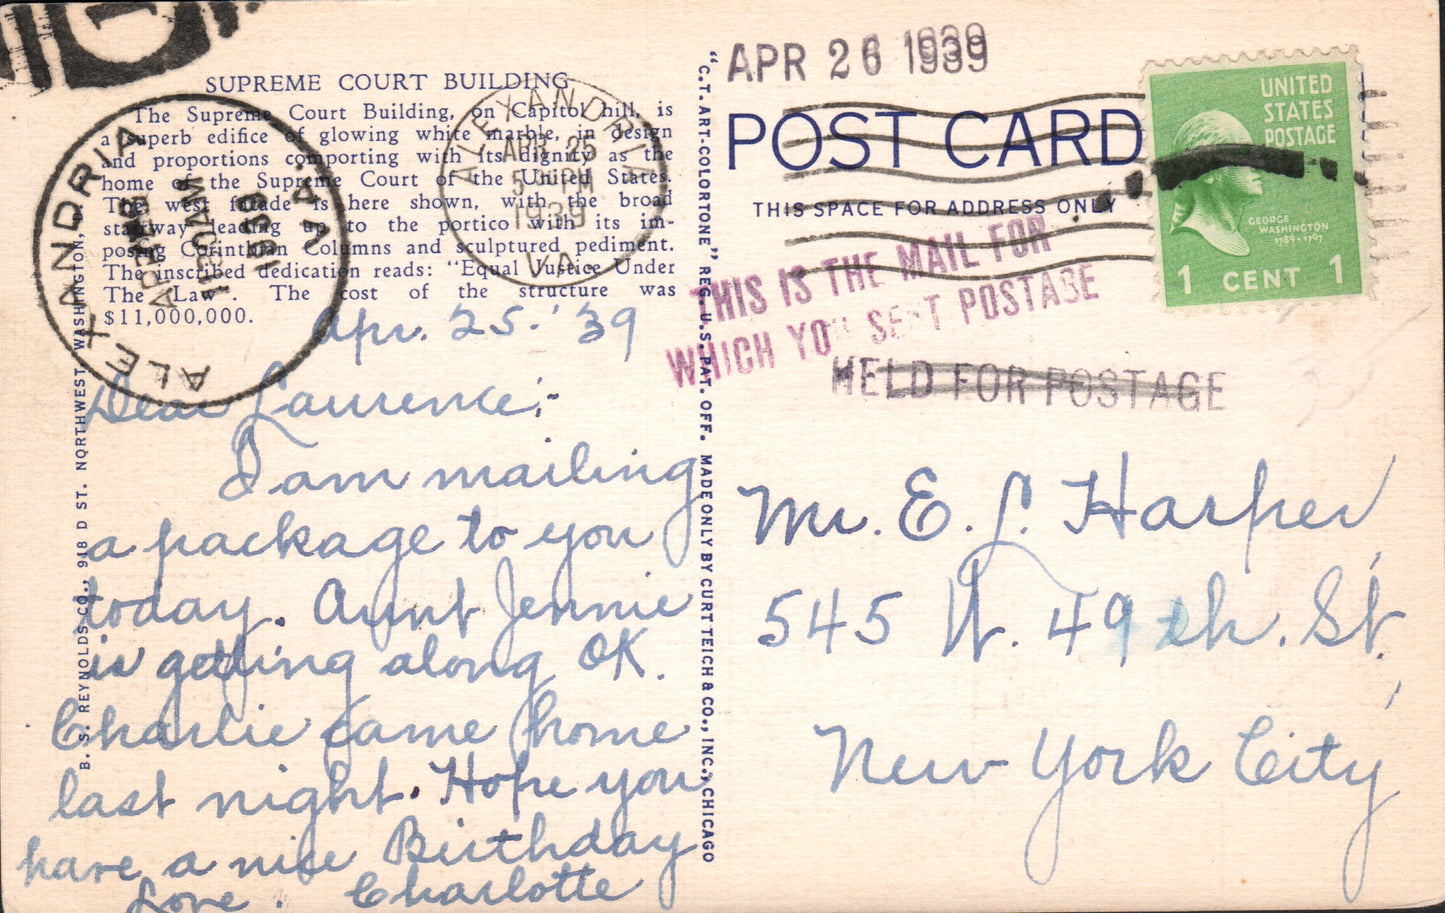 SUPREME COURT BUILDING
The Supreme Court Building, on Capitol hill, is
a superb edifice of glowing white marble, in design
and proportions comporting with its dignity as the
home of the Supreme Court of the United States.
The west facade is here shown, with the broad
stairway leading up to the portico with its im-
posing Corinthian Columns and sculptured pediment.
The inscribed dedication reads: "Equal Justice Under
The Law". The cost of the structure was
$11,000,000.
ALEXANDRIA VA.
APR 26
AM
1939
ALEXANDRIA
APR 25
5 PM
1939
VA.
Apr. 25. '39
Dear Laurence:-
I am mailing
a package to you
today. Aunt Jennie
is getting along OK.
Charlie came home
last night. Hope you
have a nice Birthday
Love. Charlotte
B. S. REYNOLDS CO., 918 D ST. NORTHWEST, WASHINGTON, D.
"C.T. ART-COLORTONE" REG. U.S. PAT. OFF. MADE ONLY BY CURT TEICH & CO., INC., CHICAGO
APR 26 1939
POST CARD
THIS SPACE FOR ADDRESS ONLY
THIS IS THE MAIL FOR
WHICH YOU SENT POSTAGE
HELD FOR POSTAGE
UNITED
STATES
POSTAGE
GEORGE
WASHINGTON
1789-1797
1 CENT 1
Mr. E. L. Harper,
545 W. 49th. St.,
New York City